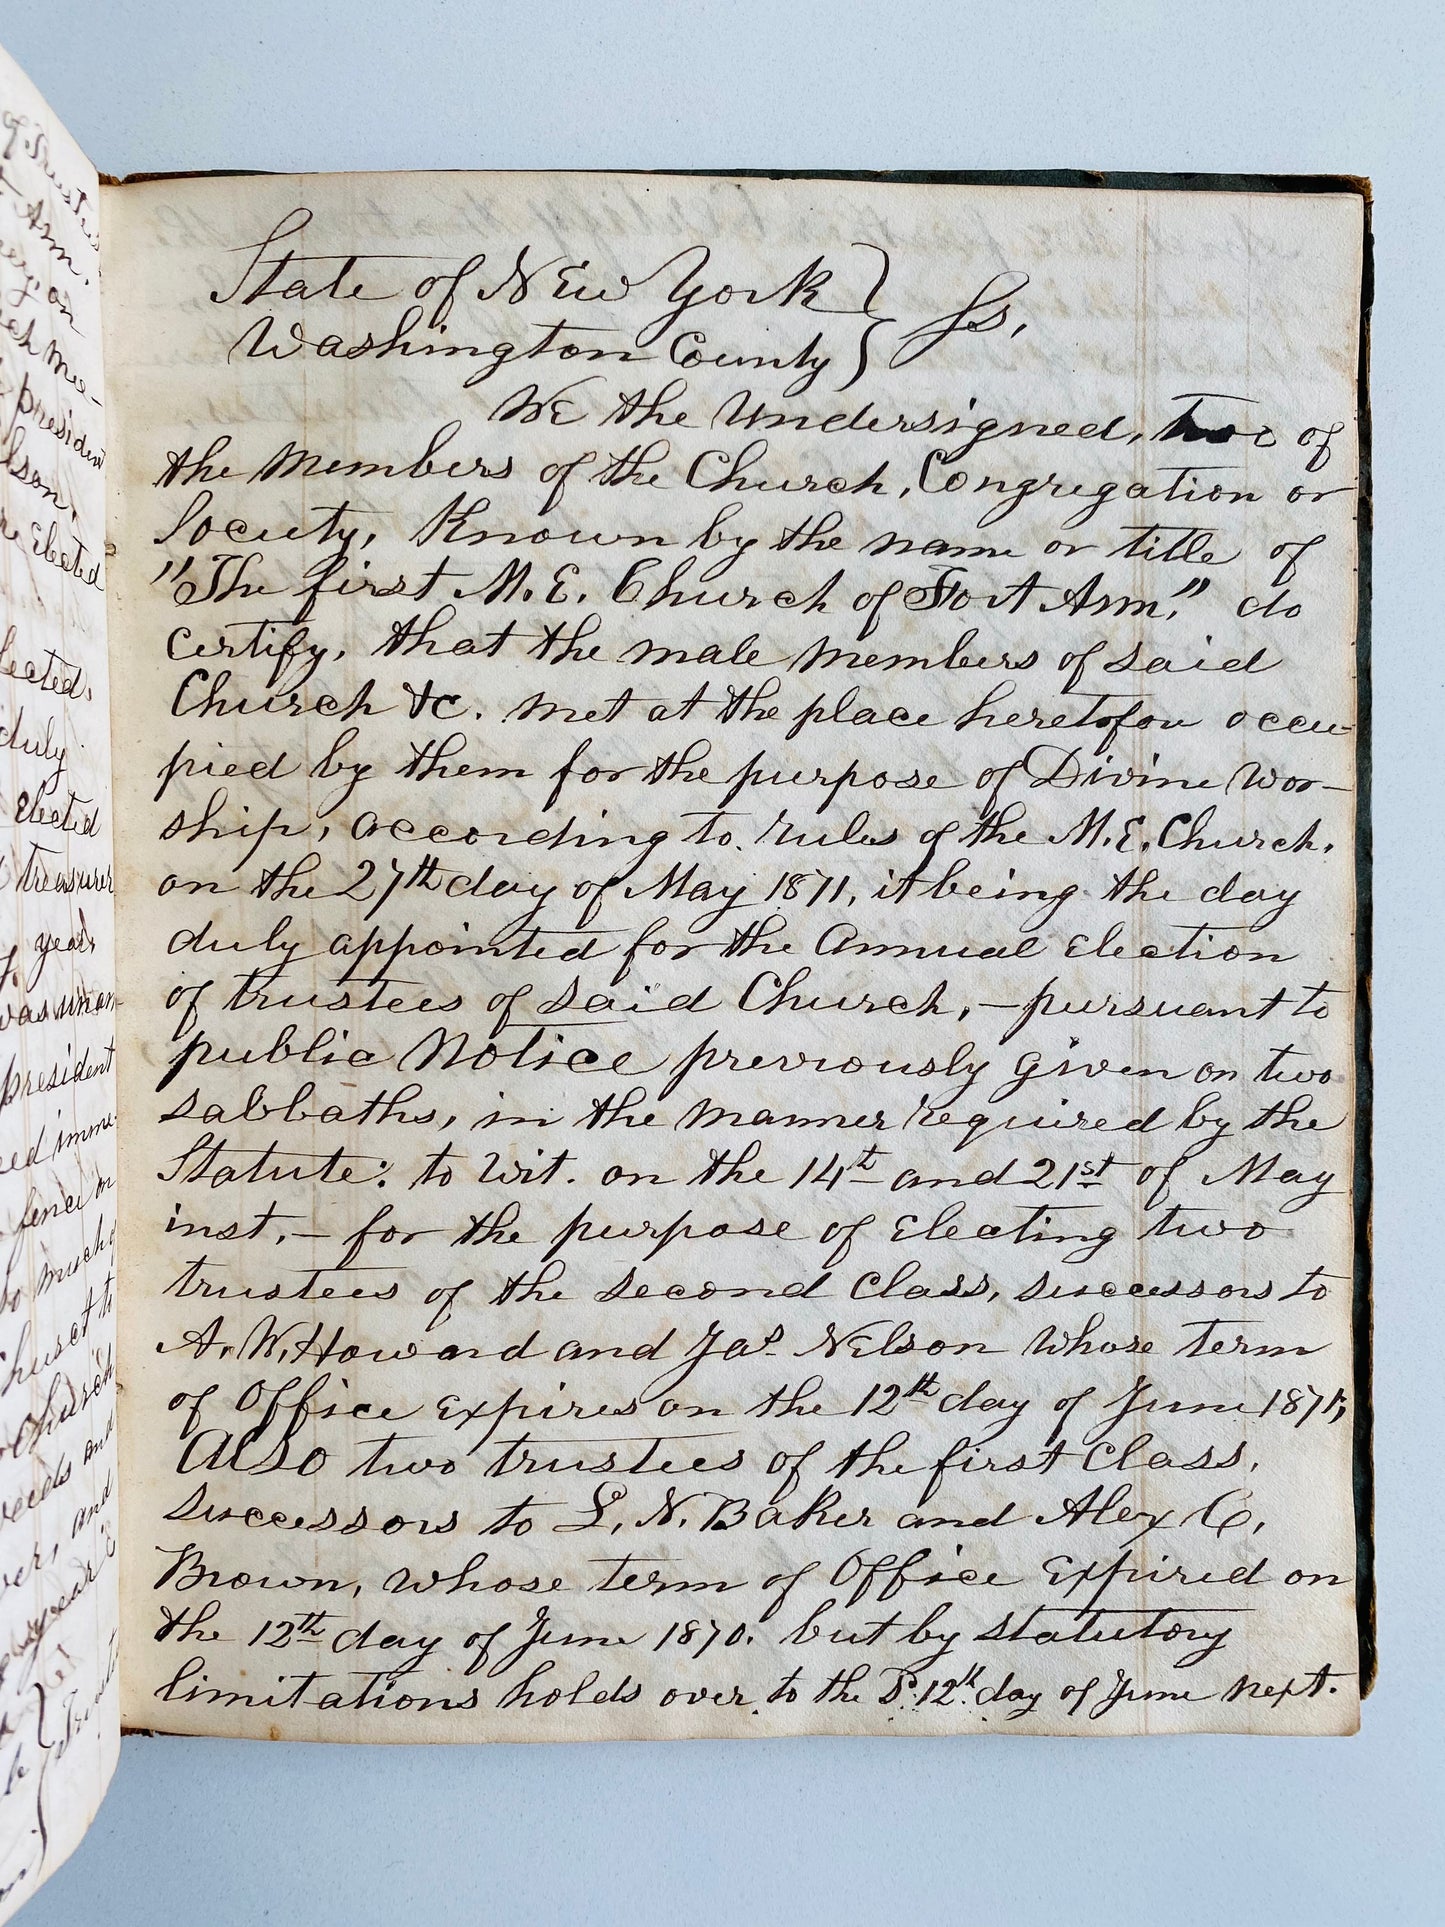 State of New York }
Washington County } Ss,
We the Undersigned, two of
the Members of the Church, Congregation or
Society, Known by the name or title of
"The first M. E. Church of Fort Ann," do
certify, that the male members of said
Church &c. met at the place heretofou occu-
pied by them for the purpose of Divine Wor-
ship, according to rules of the M. E. Church,
on the 27th day of May 1871, it being the day
duly appointed for the Annual Election
of trustees of said Church, – pursuant to
public Notice previously given on two
sabbaths, in the manner required by the
Statute: to wit. on the 14th and 21st of May
inst, – for the purpose of Electing two
trustees of the second Class, successors to
A. W. Howard and Jas Nelson whose term
of Office expires on the 12th day of June 1871;
Also two trustees of the first Class,
successors to L. N. Baker and Alex C,
Brown, whose term of Office Expired on
the 12th day of June 1870. but by statutory
limitations holds over to the 12th day of June next.
Ann.
on
Mee-
president
Elected
duly
Elected
treasurer
years
president
imme-
fence on
much
Church
and
and
year